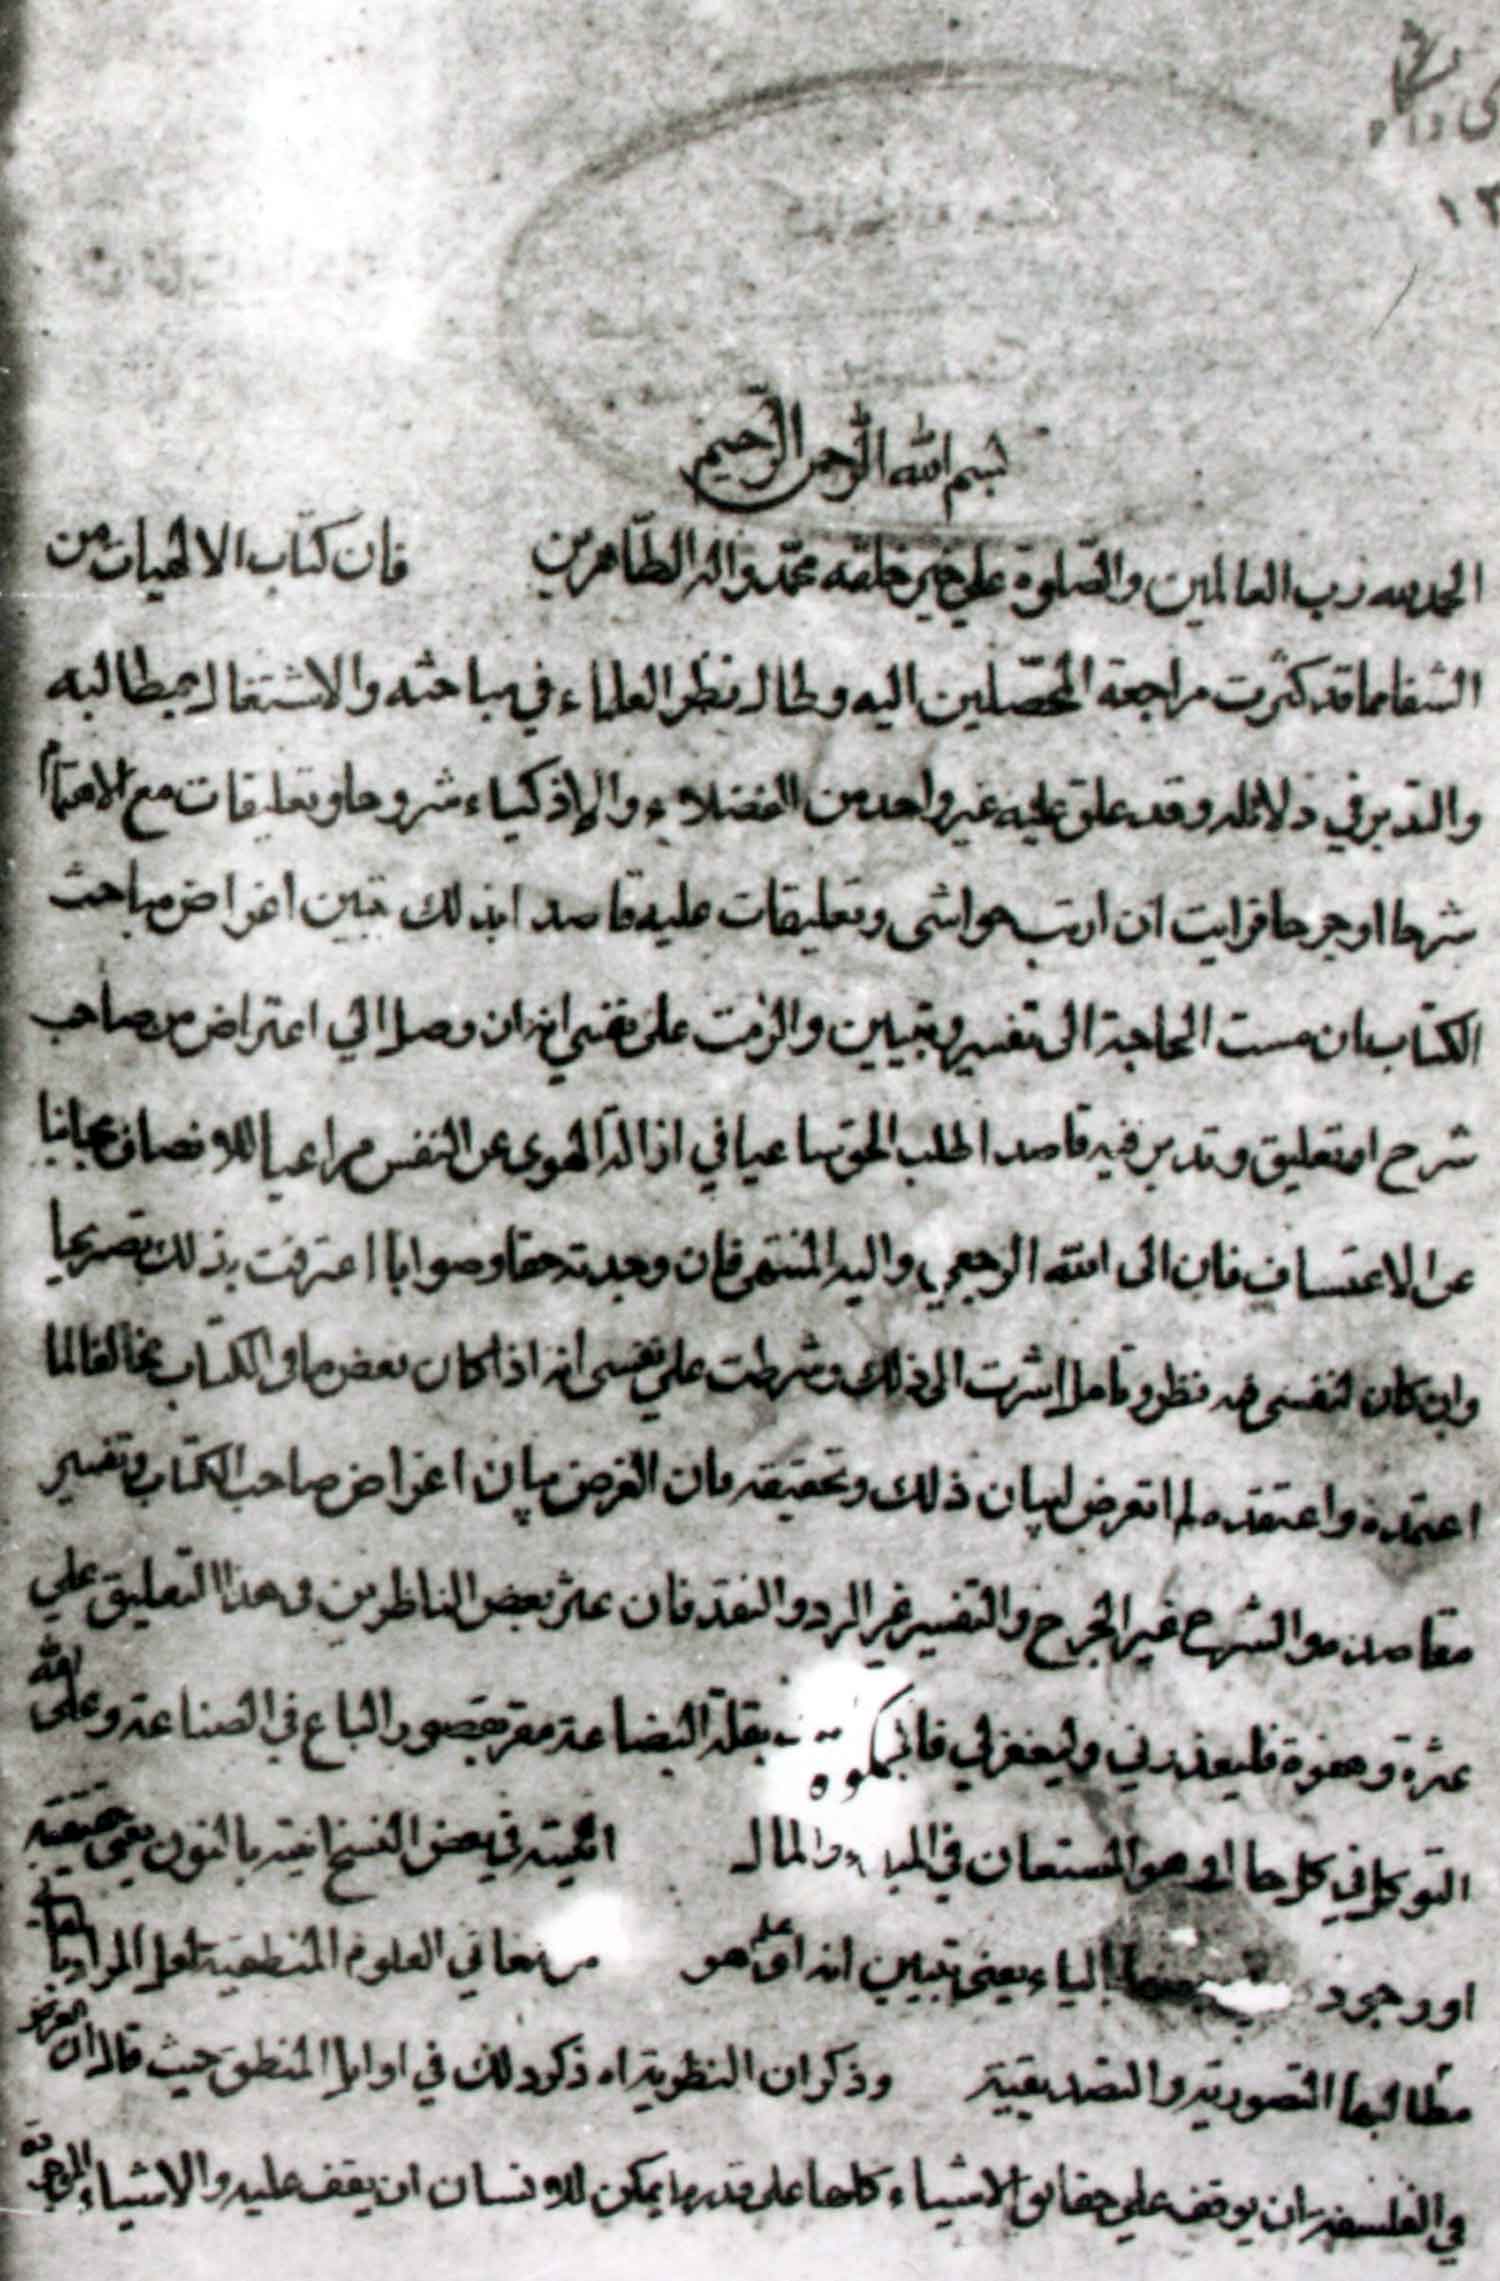 بسم الله الرحمن الرحيم
الحمد لله رب العالمين والصلوة علي خير خلقه محمد واله الطاهرين فان كتاب الالهيات من
الشفا مما قد كثرت مراجعة المحصلين اليه وطال نظر العلماء في مباحثه والاشتغال بمطالبه
والتدبر في دلائله وقد علق عليه غير واحد من الفضلاء والاذكياء شروحا وتعليقات مع الاهتمام
شرحا او جرحا فرايت ان ارتب حواشي وتعليقات عليه قاصدا بذلك تبيين اغراض مباحث
الكتاب ان مست الحاجة الى تفسير وتبيين والزمت على نفسي انه ان وصل الي اعتراض من صاحب
شرح او تعليق وتدبر فيه قاصدا لطلب الحق ساعيا في ازالة الهوي عن النفس مراعيا للانصاف مجانبا
عن الاعتساف فان الى الله الرجعي واليه المنتهى فان وجدته حقا وصوابا اعترفت بذلك تصريحا
وان كان لنفسى فيه نظر وتامل اشرت الى ذلك وشرطت علي نفسى انه اذا كان بعض ما في الكتاب مخالفا لما
اعتمده واعتقده لم اتعرض لبيان ذلك وتحقيقه فان الغرض بيان اغراض صاحب الكتاب وتفسير
مقاصده والشرح غير الجرح والتفسير غير الرد والنقد فان عثر بعض الناظرين في هذا التعليق علي
عثرة وهفوة فليعذرني وليغفر لي فاني بقلة البضاعة مقر بقصور الباع في الصناعة وعلى الله
التوكل في كل حال وهو المستعان في المبدء والمال انيته في بعض النسخ انيته بالنون يعني حقيقته
او وجود بالياء يعني تبيين انه اي علم هو في العلوم المنطقية لعل المراد
مطالبها التصورية والتصديقية وذكر ان النظرية اه ذكر ذلك في اوايل المنطق حيث قال ان الغرض
في الفلسفة ان يوقف علي حقايق الاشياء كلها على قدر ما يمكن للانسان ان يقف عليه والاشياء الموجودة